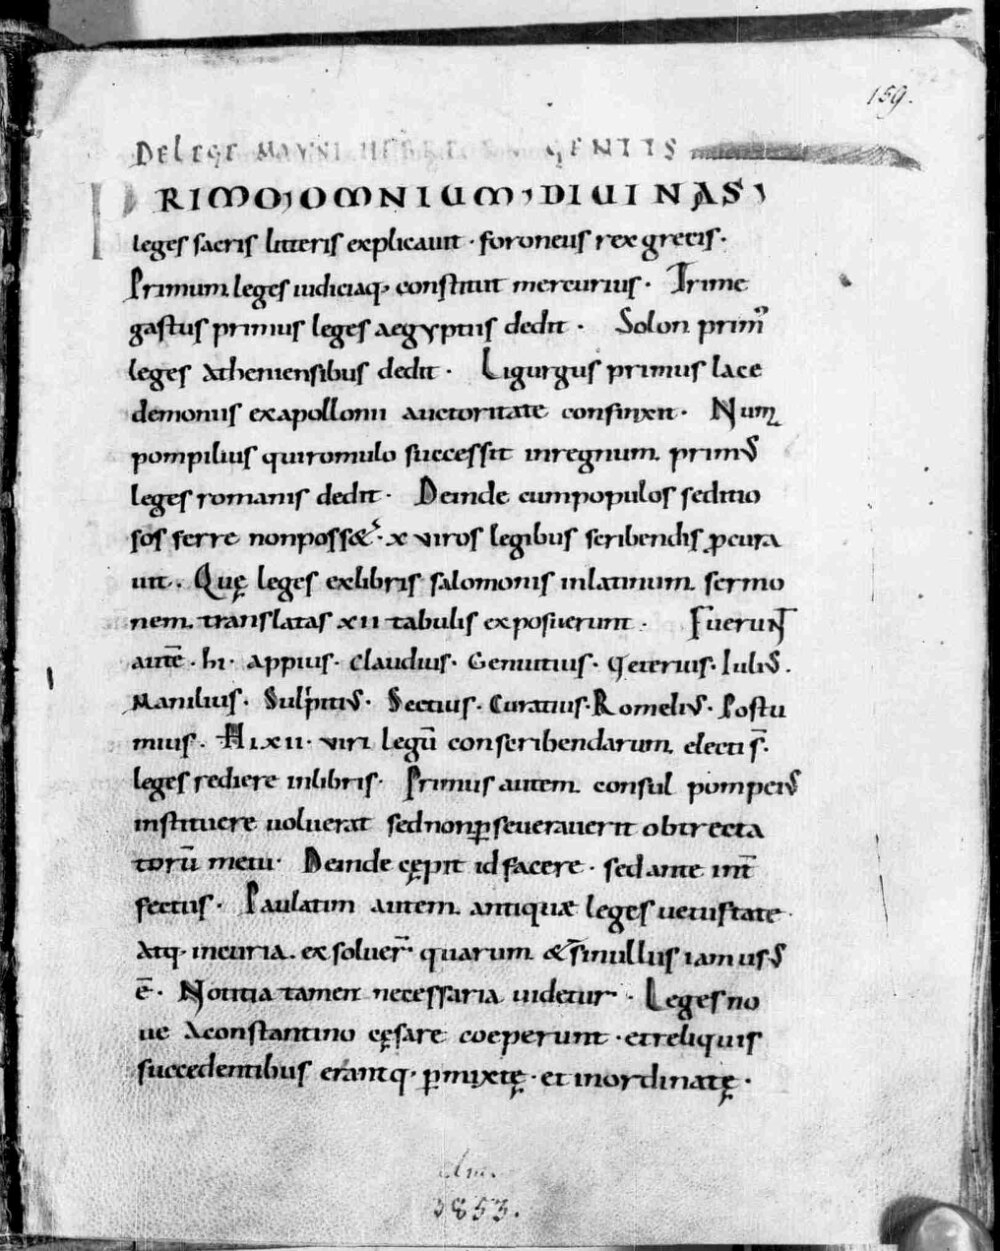 159.
DELEGE GENTIS
PRIMO, OMNIUM, DIUINAS,
leges sacris litteris explicauit · foroneus rex grecis ·
Primum leges iudiciaq; constituit mercurius · Trime
gastus primus leges aegyptiis dedit · Solon primꝰ
leges Atheniensibus dedit · Ligurgus primus lace
demoniis exapollonii auctoritate confinxit · Num
pompilius quiromulo successit inregnum primꝰ
leges romanis dedit · Deinde cumpopulos seditio
sos ferre nonposs& · x viros legibus scribendis ꝓcura
uit · Quę leges exlibris salomonis inlatinum sermo
nem translatas xii tabulis exposuerunt · Fuerunt
autē · hi · Appius · Claudius · Genutius · Geterius · Iuliꝰ ·
Manilius · Sulpitiꝰ · Sectius · Curatius · Romeliꝰ · Postu
mius · Hi xii · viri legū conscribendarum electi s̄ ·
leges rediere inlibris · Primus autem consul pompeiꝰ
instituere uoluerat sednonꝑseuerauerit obtrecta
torū metu · Deinde cępit id facere · sed ante int̄
fectus · Paulatim autem antiquæ leges uetustate ·
Atq · incuria · exsoluer̄ · quarum &sinullus iam usꝰ
ē · Notitia tamen necessaria uidetur · Leges no
ue Aconstantino cęsare coeperunt · etreliquis
succedentibus erantq · ꝑmixtę · et inordinatę ·
clm.
3853.